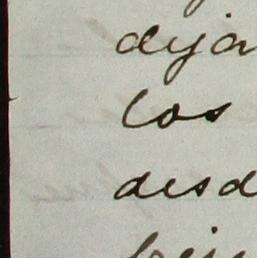 deja
los
desd